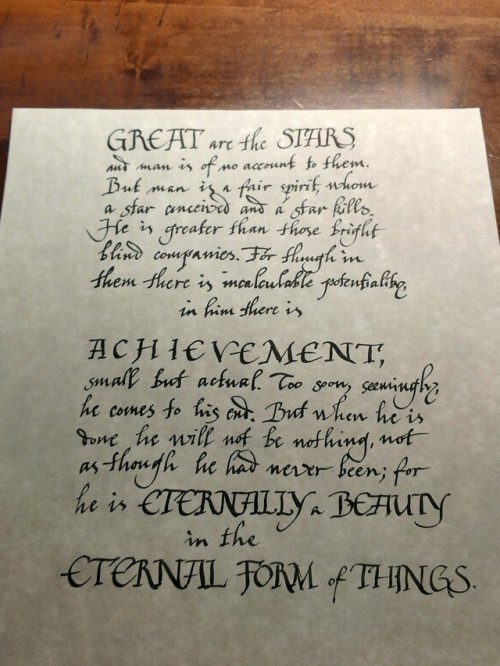 GREAT are the STARS,
and man is of no account to them.
But man is a fair spirit, whom
a star conceived and a star kills.
He is greater than those bright
blind companies. For though in
them there is incalculable potentiality,
in him there is
ACHIEVEMENT,
small but actual. Too soon, seemingly,
he comes to his end. But when he is
done he will not be nothing, not
as though he had never been; for
he is ETERNALLY a BEAUTY
in the
ETERNAL FORM of THINGS.